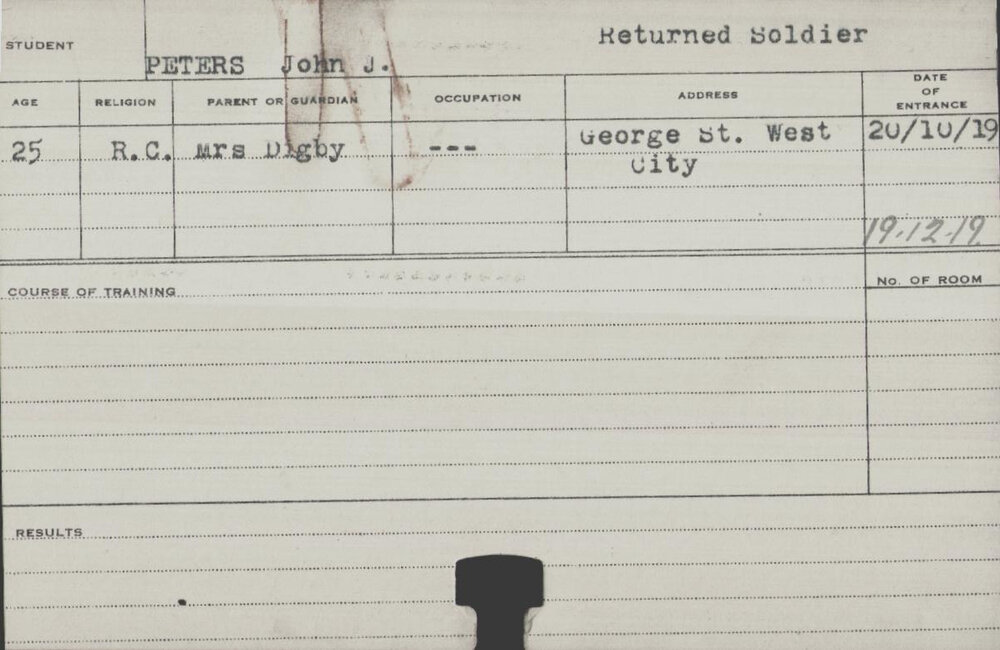 Returned Soldier
STUDENT
PETERS John J.
AGE RELIGION PARENT OR GUARDIAN OCCUPATION ADDRESS DATE OF ENTRANCE
25 R.C. Mrs Digby --- George St. West 20/10/19
City
19.12.19
COURSE OF TRAINING
No. OF ROOM
RESULTS